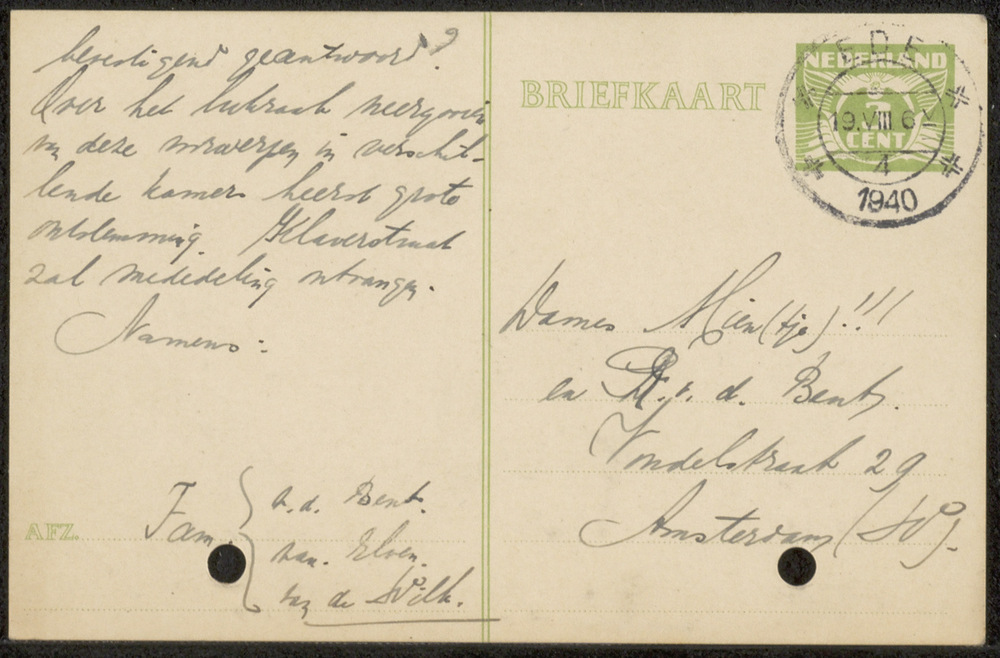 bevestigend geantwoord?
Over het lukraak neergooien
van deze voorwerpen in verschil-
lende kamers heerst grote
ontstemming. Klaverstraat
zal mededeling ontvangen.
Namens:
Fam. v.d. Bent.
van Elven.
van de Wilk.
AFZ.
BRIEFKAART
NEDERLAND
CENT
EDE
19.VIII 6
4
1940
Dames Mien(tje)!!!
en R. v. d. Bent.
Vondelstraat 29
Amsterdam (W).